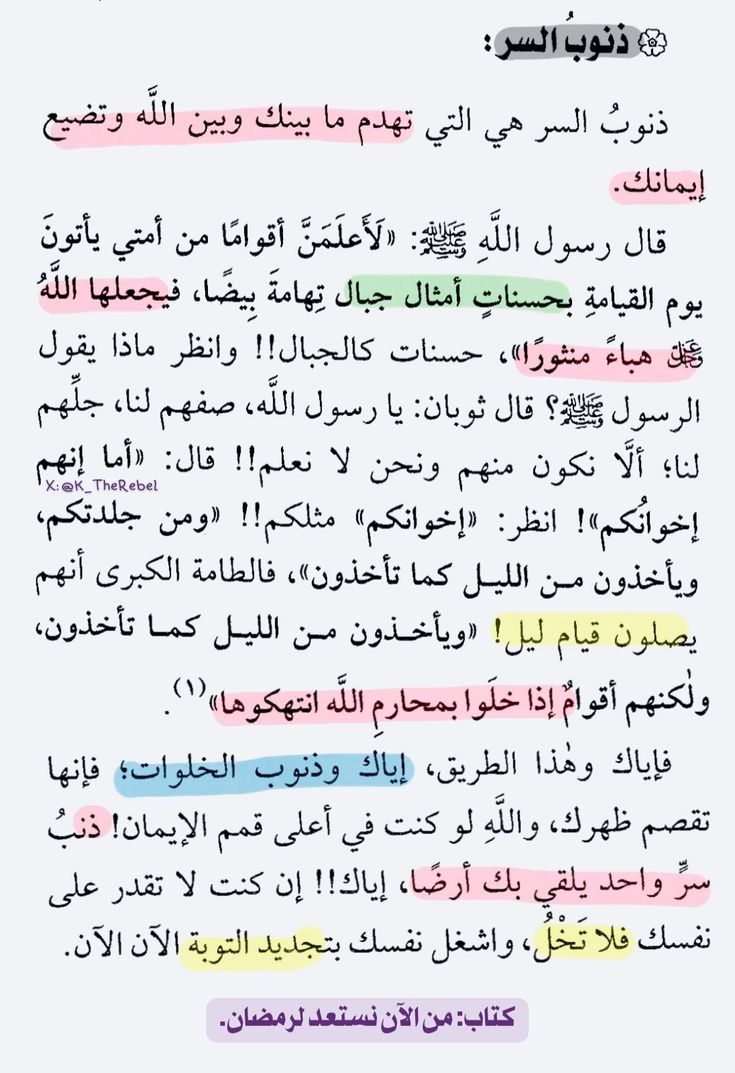 ذنوبُ السر:
ذنوبُ السر هي التي تهدم ما بينك وبين اللَّه وتضيع
إيمانك.
قال رسول اللَّهِ ﷺ: «لَأَعلَمَنَّ أقوامًا من أمتي يأتونَ
يوم القيامةِ بحسناتٍ أمثال جبال تِهامةَ بِيضًا، فيجعلها اللَّهُ
ﷻ هباءً منثورًا»، حسنات كالجبال!! وانظر ماذا يقول
الرسول ﷺ؟ قال ثوبان: يا رسول اللَّه، صفهم لنا، جلِّهم
لنا؛ ألَّا نكون منهم ونحن لا نعلم!! قال: «أما إنهم
X:@K_TheRebel
إخوانُكم»! انظر: «إخوانكم» مثلكم!! «ومن جلدتكم،
ويأخذون مـن الليـل كما تأخذون»، فالطامة الكبرى أنهم
يصلون قيام ليل! «ويأخـذون مـن الليـل كمـا تأخذون،
ولٰكنهم أقوامٌ إذا خلَوا بمحارمِ اللَّه انتهكوها»(١).
فإياك وهٰذا الطريق، إياك وذنوب الخلوات؛ فإنها
تقصم ظهرك، واللَّهِ لو كنت في أعلى قمم الإيمان! ذنبُ
سرٍّ واحد يلقي بك أرضًا، إياك!! إن كنت لا تقدر على
نفسك فلا تَخْلُ، واشغل نفسك بتجديد التوبة الآن الآن.
كتاب: من الآن نستعد لرمضان.